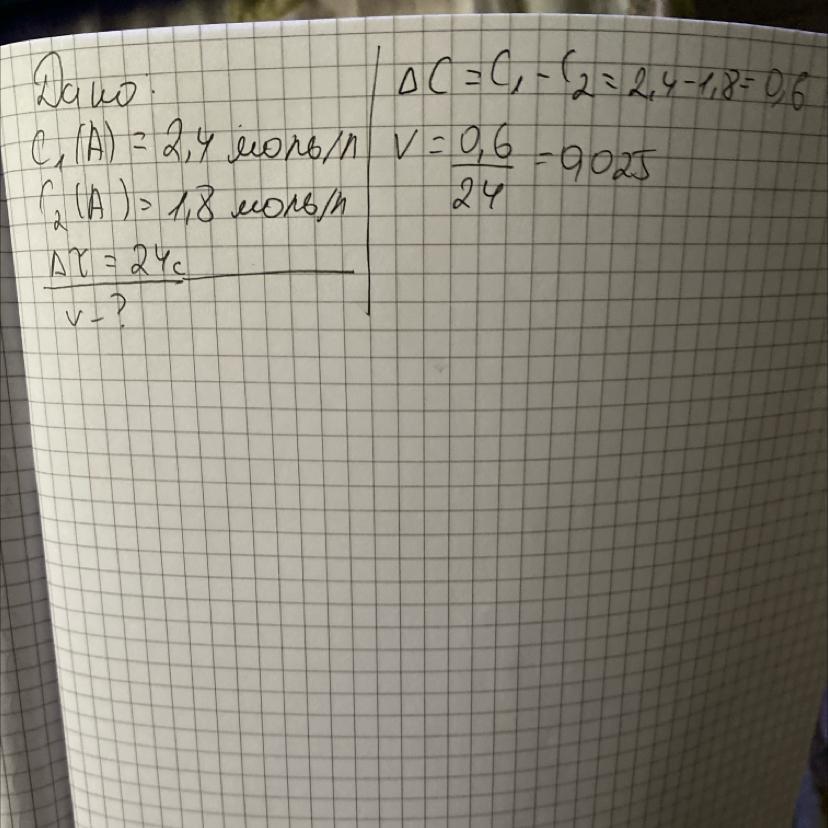 Дано:
C₁(A) = 2,4 моль/л
C₂(A) = 1,8 моль/л
Δτ = 24с
v - ?
ΔC = C₁ - C₂ = 2,4 - 1,8 = 0,6
V = 0,6/24 = 0,025